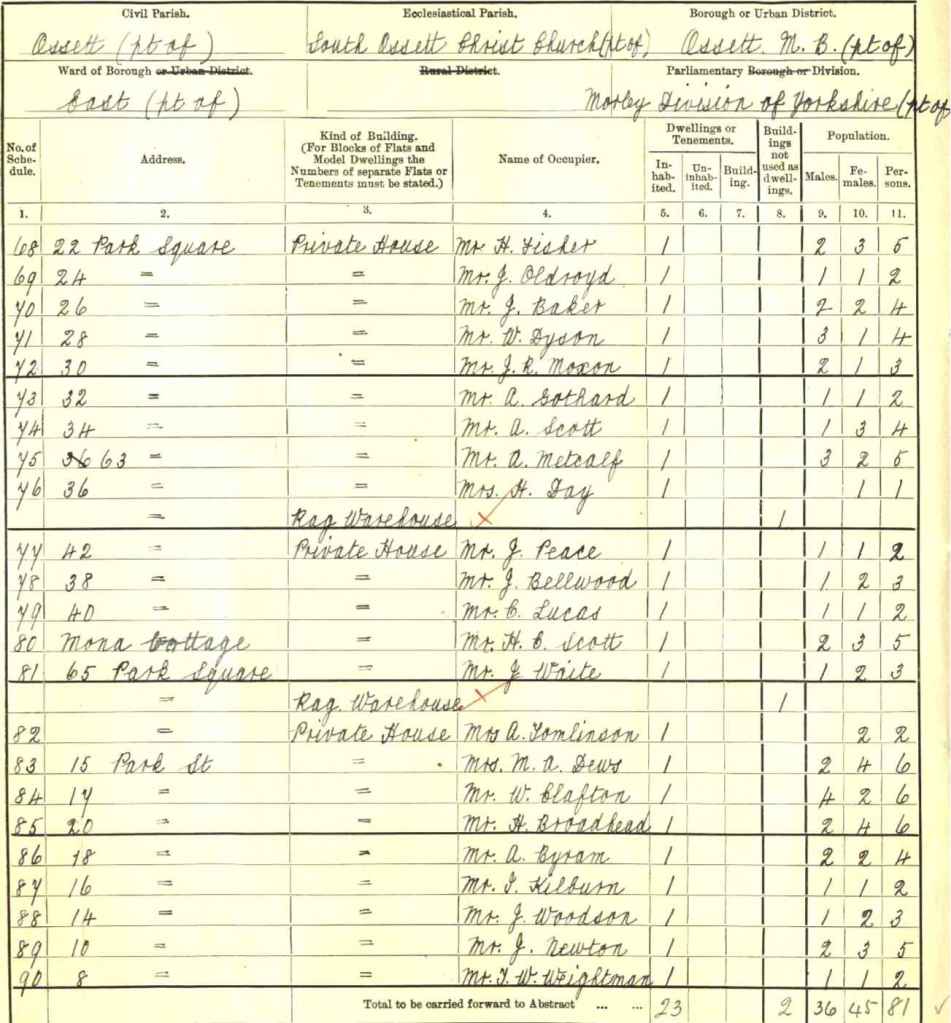 Civil Parish. Ecclesiastical Parish. Borough or Urban District.
Ossett (pt of) South Ossett Christ Church (pt of) Ossett M. B. (pt of)
Ward of Borough or Urban District. Rural District. Parliamentary Borough or Division.
East (pt of) Morley Division of Yorkshire (pt of
No. of Schedule. Address. Kind of Building. (For Blocks of Flats and Model Dwellings the Numbers of separate Flats or Tenements must be stated.) Name of Occupier. Dwellings or Tenements. Inhabited. Uninhabited. Building. Buildings not used as dwellings. Population. Males. Females. Persons.
1. 2. 3. 4. 5. 6. 7. 8. 9. 10. 11.
68 22 Park Square Private House Mr H. Fisher 1 2 3 5
69 24 = = Mr. J. Oldroyd 1 1 1 2
70 26 = = Mr. J. Baker 1 2 2 4
71 28 = = Mr. W. Dyson 1 3 1 4
72 30 = = Mr. J. R. Moxon 1 2 1 3
73 32 = = Mr. A. Gothard 1 1 1 2
74 34 = = Mr. A. Scott 1 1 3 4
75 36 63 = = Mr. A. Metcalf 1 3 2 5
76 36 = = Mrs. H. Day 1 1 1
= Rag Warehouse × 1
77 42 = Private House Mr. J. Peace 1 1 1 2
78 38 = = Mr. J. Bellwood 1 1 2 3
79 40 = = Mr. C. Lucas 1 1 1 2
80 Mona Cottage = Mr. H. C. Scott 1 2 3 5
81 65 Park Square = Mr. J Waite 1 1 2 3
= Rag. Warehouse × 1
82 = Private House Mrs A. Tomlinson 1 2 2
83 15 Park St = Mrs. M. A. Dews 1 2 4 6
84 17 = = Mr. W. Clafton 1 4 2 6
85 20 = = Mr. H. Broadhead 1 2 4 6
86 18 = = Mr. A. Byram 1 2 2 4
87 16 = = Mr. T. Kilburn 1 1 1 2
88 14 = = Mr. J. Woodson 1 1 2 3
89 10 = = Mr. J. Newton 1 2 3 5
90 8 = = Mr. T. W. Weightman 1 1 1 2
Total to be carried forward to Abstract ... ... 23 2 36 45 81 ✓